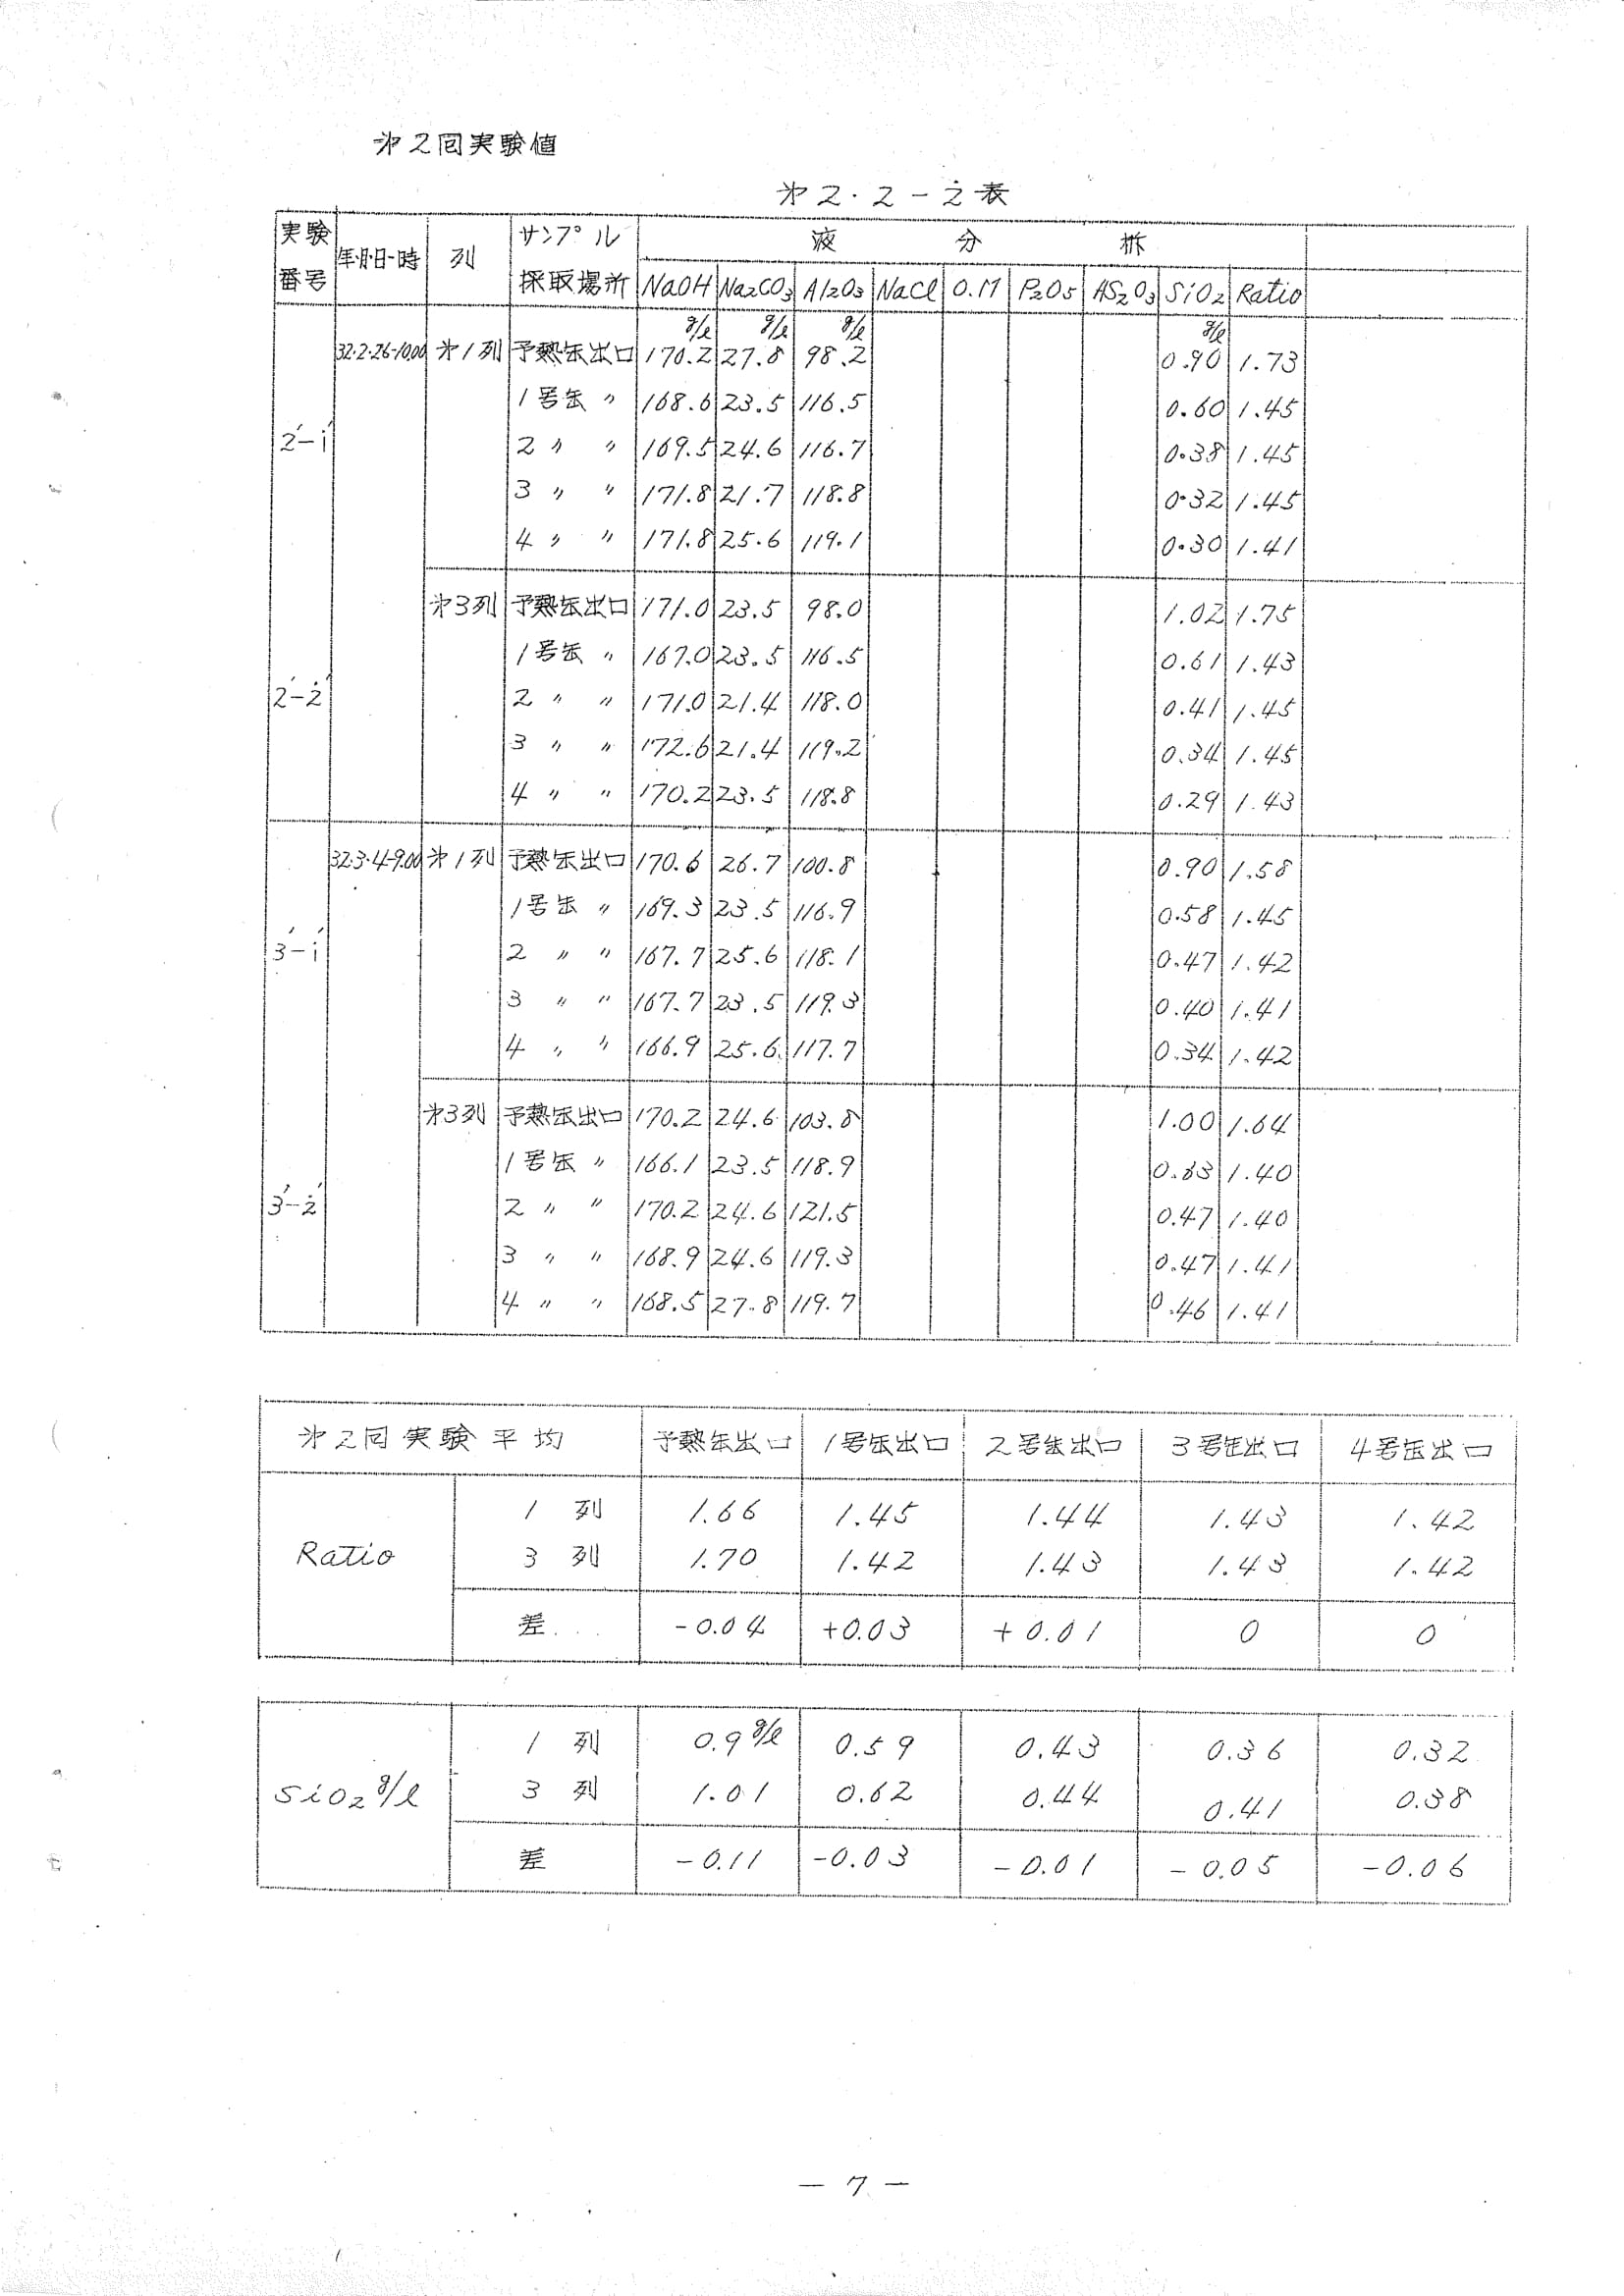 才2回実験値
才2・2-2表
実験番号 年・月・日・時 列 サンプル採取場所 液分析
NaOH Na₂CO₃ Al₂O₃ NaCl O.M P₂O₅ AS₂O₃ SiO₂ Ratio
g/l g/l g/l g/l
32・2・26-10.00 才1列 予熱缶出口 170.2 27.8 98.2 0.90 1.73
1号缶 〃 168.6 23.5 116.5 0.60 1.45
2′-1′ 2 〃 〃 169.5 24.6 116.7 0.38 1.45
3 〃 〃 171.8 21.7 118.8 0.32 1.45
4 〃 〃 171.8 25.6 119.1 0.30 1.41
才3列 予熱缶出口 171.0 23.5 98.0 1.02 1.75
1号缶 〃 167.0 23.5 116.5 0.61 1.43
2′-2′ 2 〃 〃 171.0 21.4 118.0 0.41 1.45
3 〃 〃 172.6 21.4 119.2 0.34 1.45
4 〃 〃 170.2 23.5 118.8 0.29 1.43
32・3・4-9.00 才1列 予熱缶出口 170.6 26.7 100.8 0.90 1.58
1号缶 〃 169.3 23.5 116.9 0.58 1.45
3′-1′ 2 〃 〃 167.7 25.6 118.1 0.47 1.42
3 〃 〃 167.7 23.5 119.3 0.40 1.41
4 〃 〃 166.9 25.6 117.7 0.34 1.42
才3列 予熱缶出口 170.2 24.6 103.8 1.00 1.64
1号缶 〃 166.1 23.5 118.9 1.40
3′-2′ 2 〃 〃 170.2 24.6 121.5 0.47 1.40
3 〃 〃 168.9 24.6 119.3 0.47 1.41
4 〃 〃 168.5 27.8 119.7 0.46 1.41
才2回実験平均 予熱缶出口 1号缶出口 2号缶出口 3号缶出口 4号缶出口
1列 1.66 1.45 1.44 1.43 1.42
Ratio 3列 1.70 1.42 1.43 1.43 1.42
差 -0.04 +0.03 +0.01 0 0
1列 0.9g/l 0.59 0.43 0.36 0.32
SiO₂ g/l 3列 1.01 0.62 0.44 0.41 0.38
差 -0.11 -0.03 -0.01 -0.05 -0.06
- 7 -